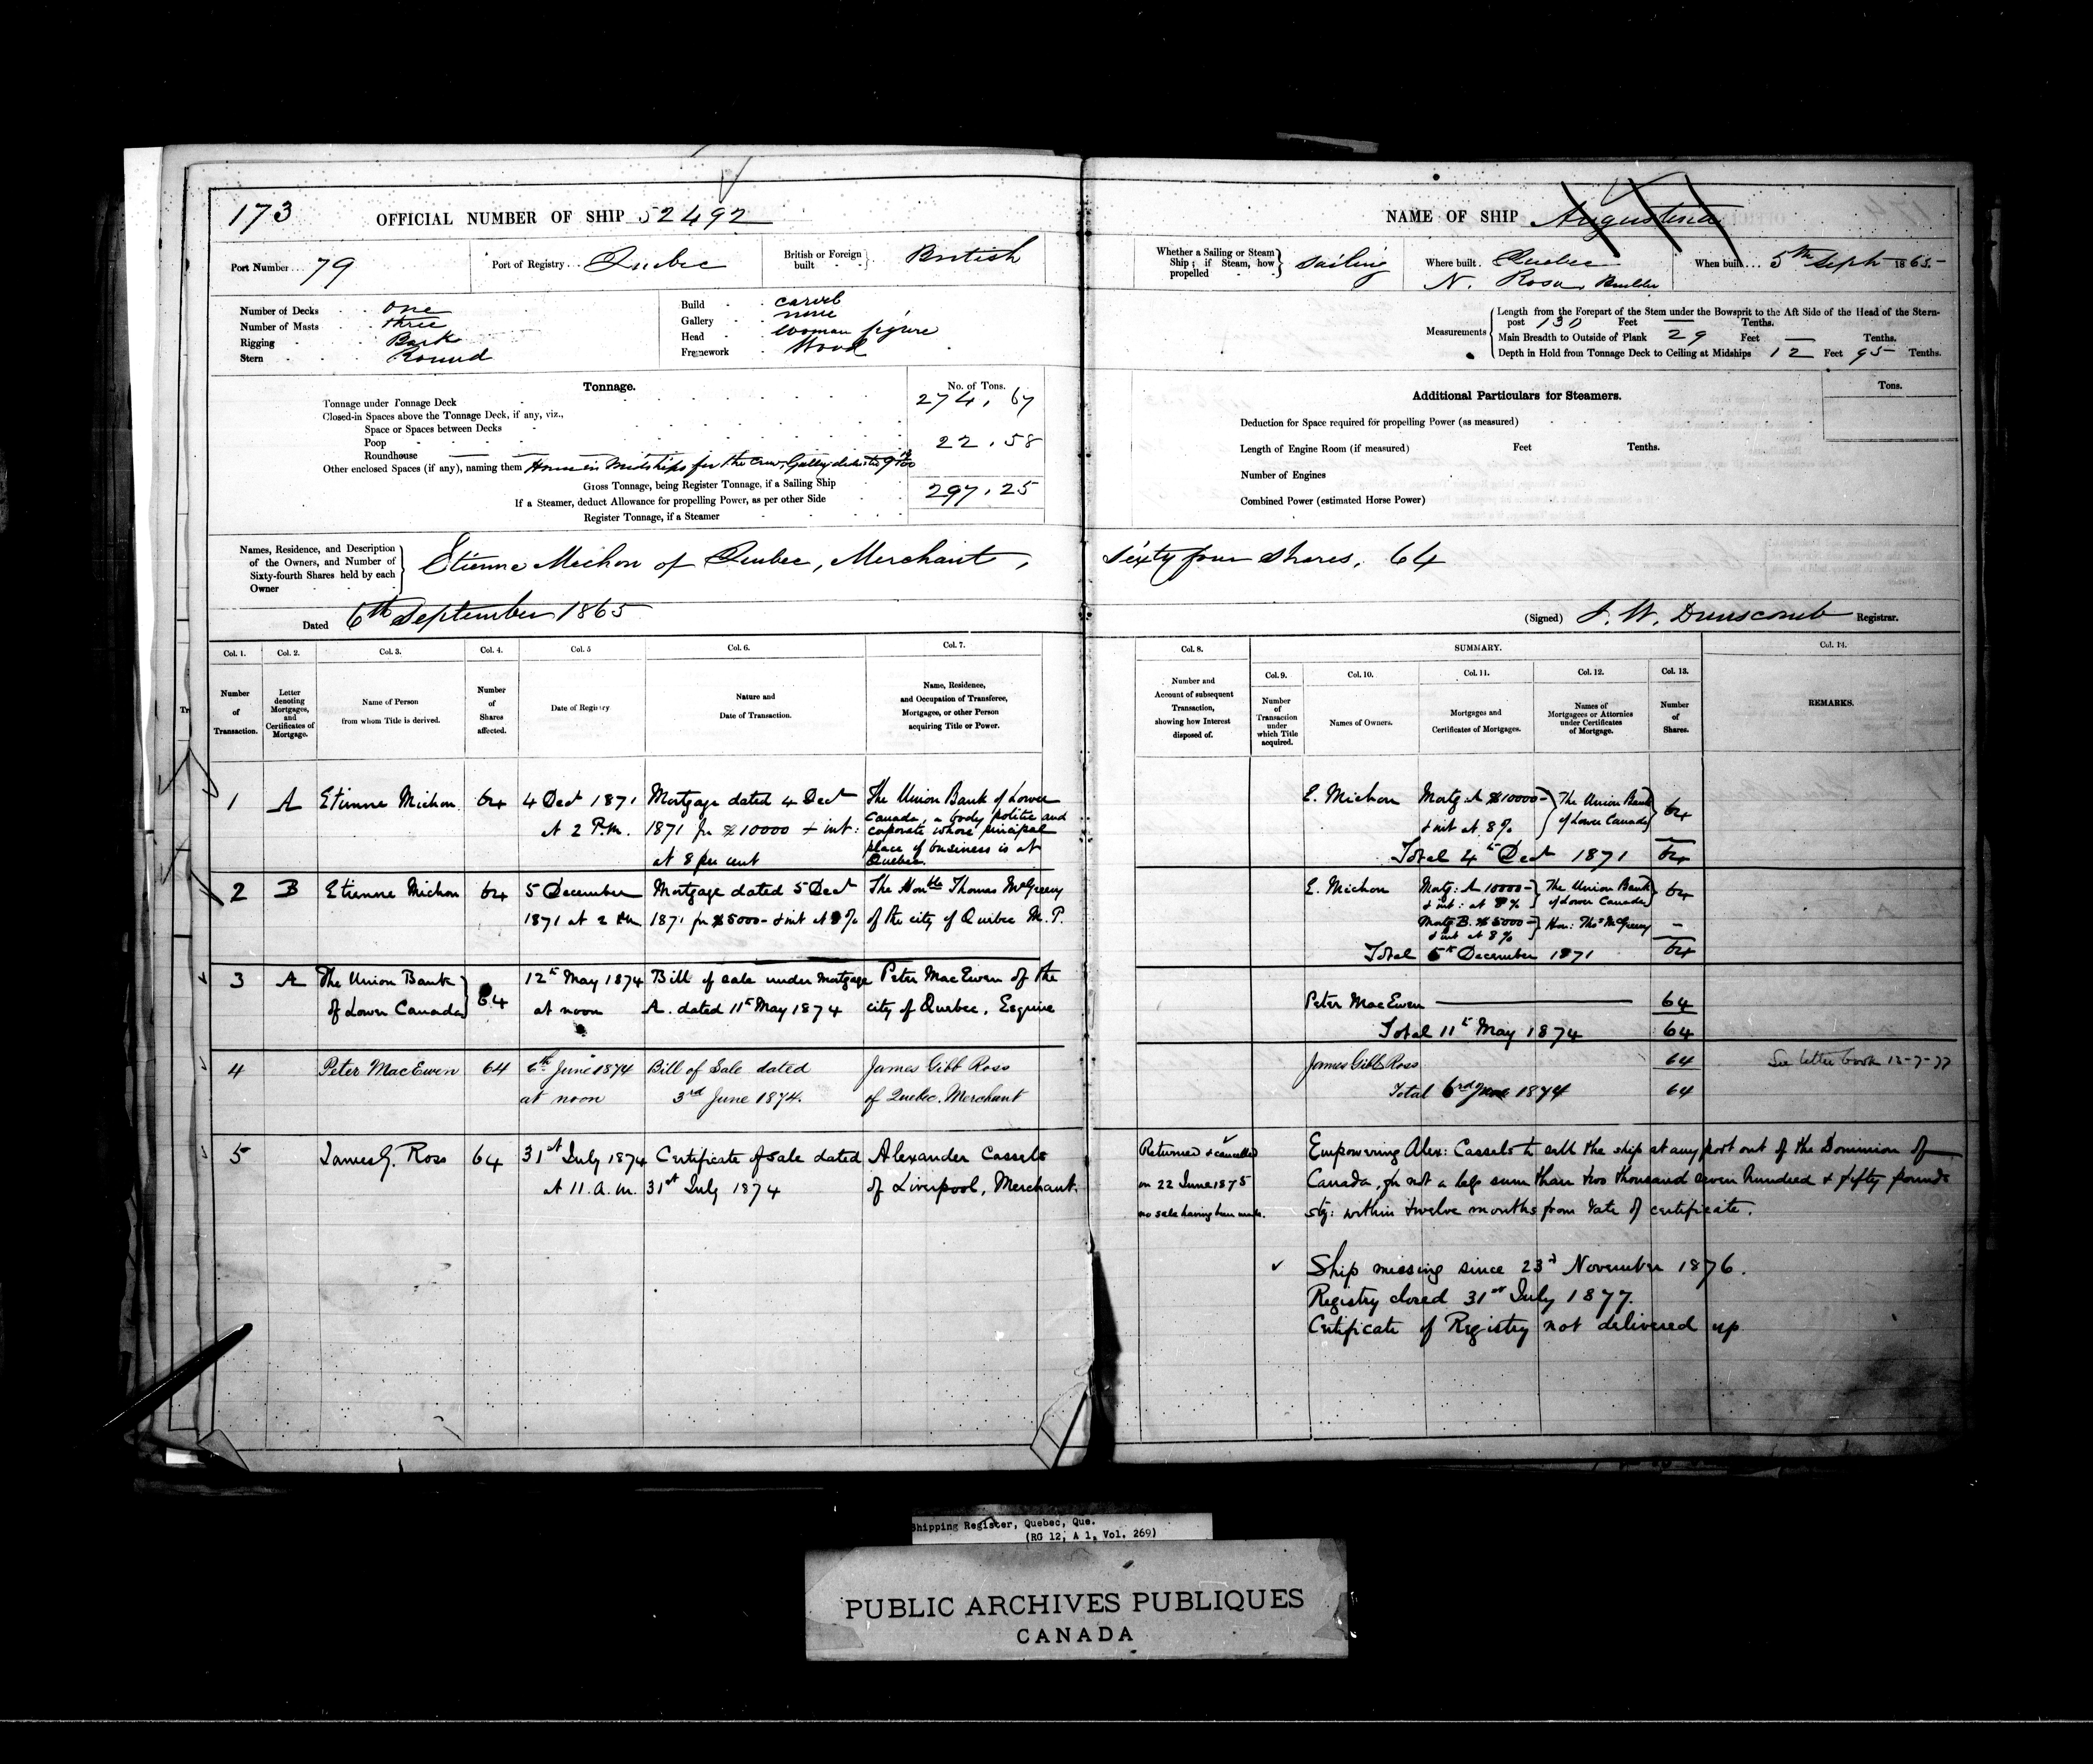 173
OFFICIAL NUMBER OF SHIP 52492
Port Number... 79
Port of Registry... Quebec
British or Foreign built British
Number of Decks One
Number of Masts three
Rigging Bark
Stern Round
Build carvel
Gallery none
Head Woman figure
Framework Wood
Tonnage.
No. of Tons.
Tonnage under Tonnage Deck 274.67
Closed-in Spaces above the Tonnage Deck, if any, viz.,
Space or Spaces between Decks
Poop 22.58
Roundhouse
Other enclosed Spaces (if any), naming them House in Midships for the crew, Galley
Gross Tonnage, being Register Tonnage, if a Sailing Ship 297.25
If a Steamer, deduct Allowance for propelling Power, as per other Side
Register Tonnage, if a Steamer
Names, Residence, and Description of the Owners, and Number of Sixty-fourth Shares held by each Owner
Etienne Michon of Quebec, Merchant,
Dated 6th September 1865
NAME OF SHIP Augustina
Whether a Sailing or Steam Ship; if Steam, how propelled Sailing
Where built. Quebec
N. Rosa, Builder
When built... 5th Sept 1865-
Measurements
Length from the Forepart of the Stem under the Bowsprit to the Aft Side of the Head of the Stern-
post 130 Feet — Tenths.
Main Breadth to Outside of Plank 29 Feet — Tenths.
Depth in Hold from Tonnage Deck to Ceiling at Midships 12 Feet 95 Tenths.
Additional Particulars for Steamers.
Tons.
Deduction for Space required for propelling Power (as measured)
Length of Engine Room (if measured) Feet Tenths.
Number of Engines
Combined Power (estimated Horse Power)
Sixty four Shares, 64
(Signed) J. W. Dunscomb Registrar.
Col. 1. Col. 2. Col. 3. Col. 4. Col. 5 Col. 6. Col. 7.
Number of Transaction.
Letter denoting Mortgages, and Certificates of Mortgage.
Name of Person from whom Title is derived.
Number of Shares affected.
Date of Registry
Nature and Date of Transaction.
Name, Residence, and Occupation of Transferee, Mortgagee, or other Person acquiring Title or Power.
Col. 8. SUMMARY. Col. 14.
Col. 9. Col. 10. Col. 11. Col. 12. Col. 13.
Number and Account of subsequent Transaction, showing how Interest disposed of.
Number of Transaction under which Title acquired.
Names of Owners.
Mortgages and Certificates of Mortgages.
Names of Mortgagees or Attornies under Certificates of Mortgage.
Number of Shares.
REMARKS.
1 A Etienne Michon 64 4 Dect 1871 Mortgage dated 4 Dect The Union Bank of Lower
at 2 P.m. 1871 for $10000 + int: Canada, a body politic and
at 8 per cent corporate whose principal
place of business is at
Quebec.
E. Michon Mortg: A $10000- The Union Bank 64
+ int at 8% of Lower Canada
Total 4th Dect 1871 64
2 B Etienne Michon 64 5 December Mortgage dated 5 Dect The Honble Thomas McGreevy
1871 at 2 Pm 1871 for $5000- + int at 8% of the city of Quebec M.P.
E. Michon Mortg: A 10000- The Union Bank 64
+ int: at 8% of Lower Canada
Mortg B. $5000- Hon: Thos McGreevy —
+ int at 8%
Total 5th December 1871 64
3 A The Union Bank 64 12th May 1874 Bill of sale under Mortgage Peter MacEwen of the
of Lower Canada at noon A. dated 11th May 1874 city of Quebec, Esquire
Peter MacEwen 64
Total 11th May 1874 64
4 Peter MacEwen 64 6th June 1874 Bill of Sale dated James Gibb Ross
at noon 3rd June 1874. of Quebec. Merchant
James Gibb Ross 64 See letter book 12-7-77
Total 6 June 1874 64
5 James G. Ross 64 31st July 1874 Certificate of Sale dated Alexander Cassels
at 11. a.m. 31st July 1874 of Liverpool, Merchant.
Returned & cancelled
on 22 June 1875
no sale having been made.
Empowering Alex: Cassels to sell the ship at any port out of the Dominion of
Canada, for not a less sum than two thousand seven hundred & fifty pounds
stg: within twelve months from date of certificate.
Ship missing since 23d November 1876.
Registry closed 31st July 1877.
Certificate of Registry not delivered up
Shipping Register, Quebec, Que.
(RG 12, A 1, Vol. 269)
PUBLIC ARCHIVES PUBLIQUES
CANADA